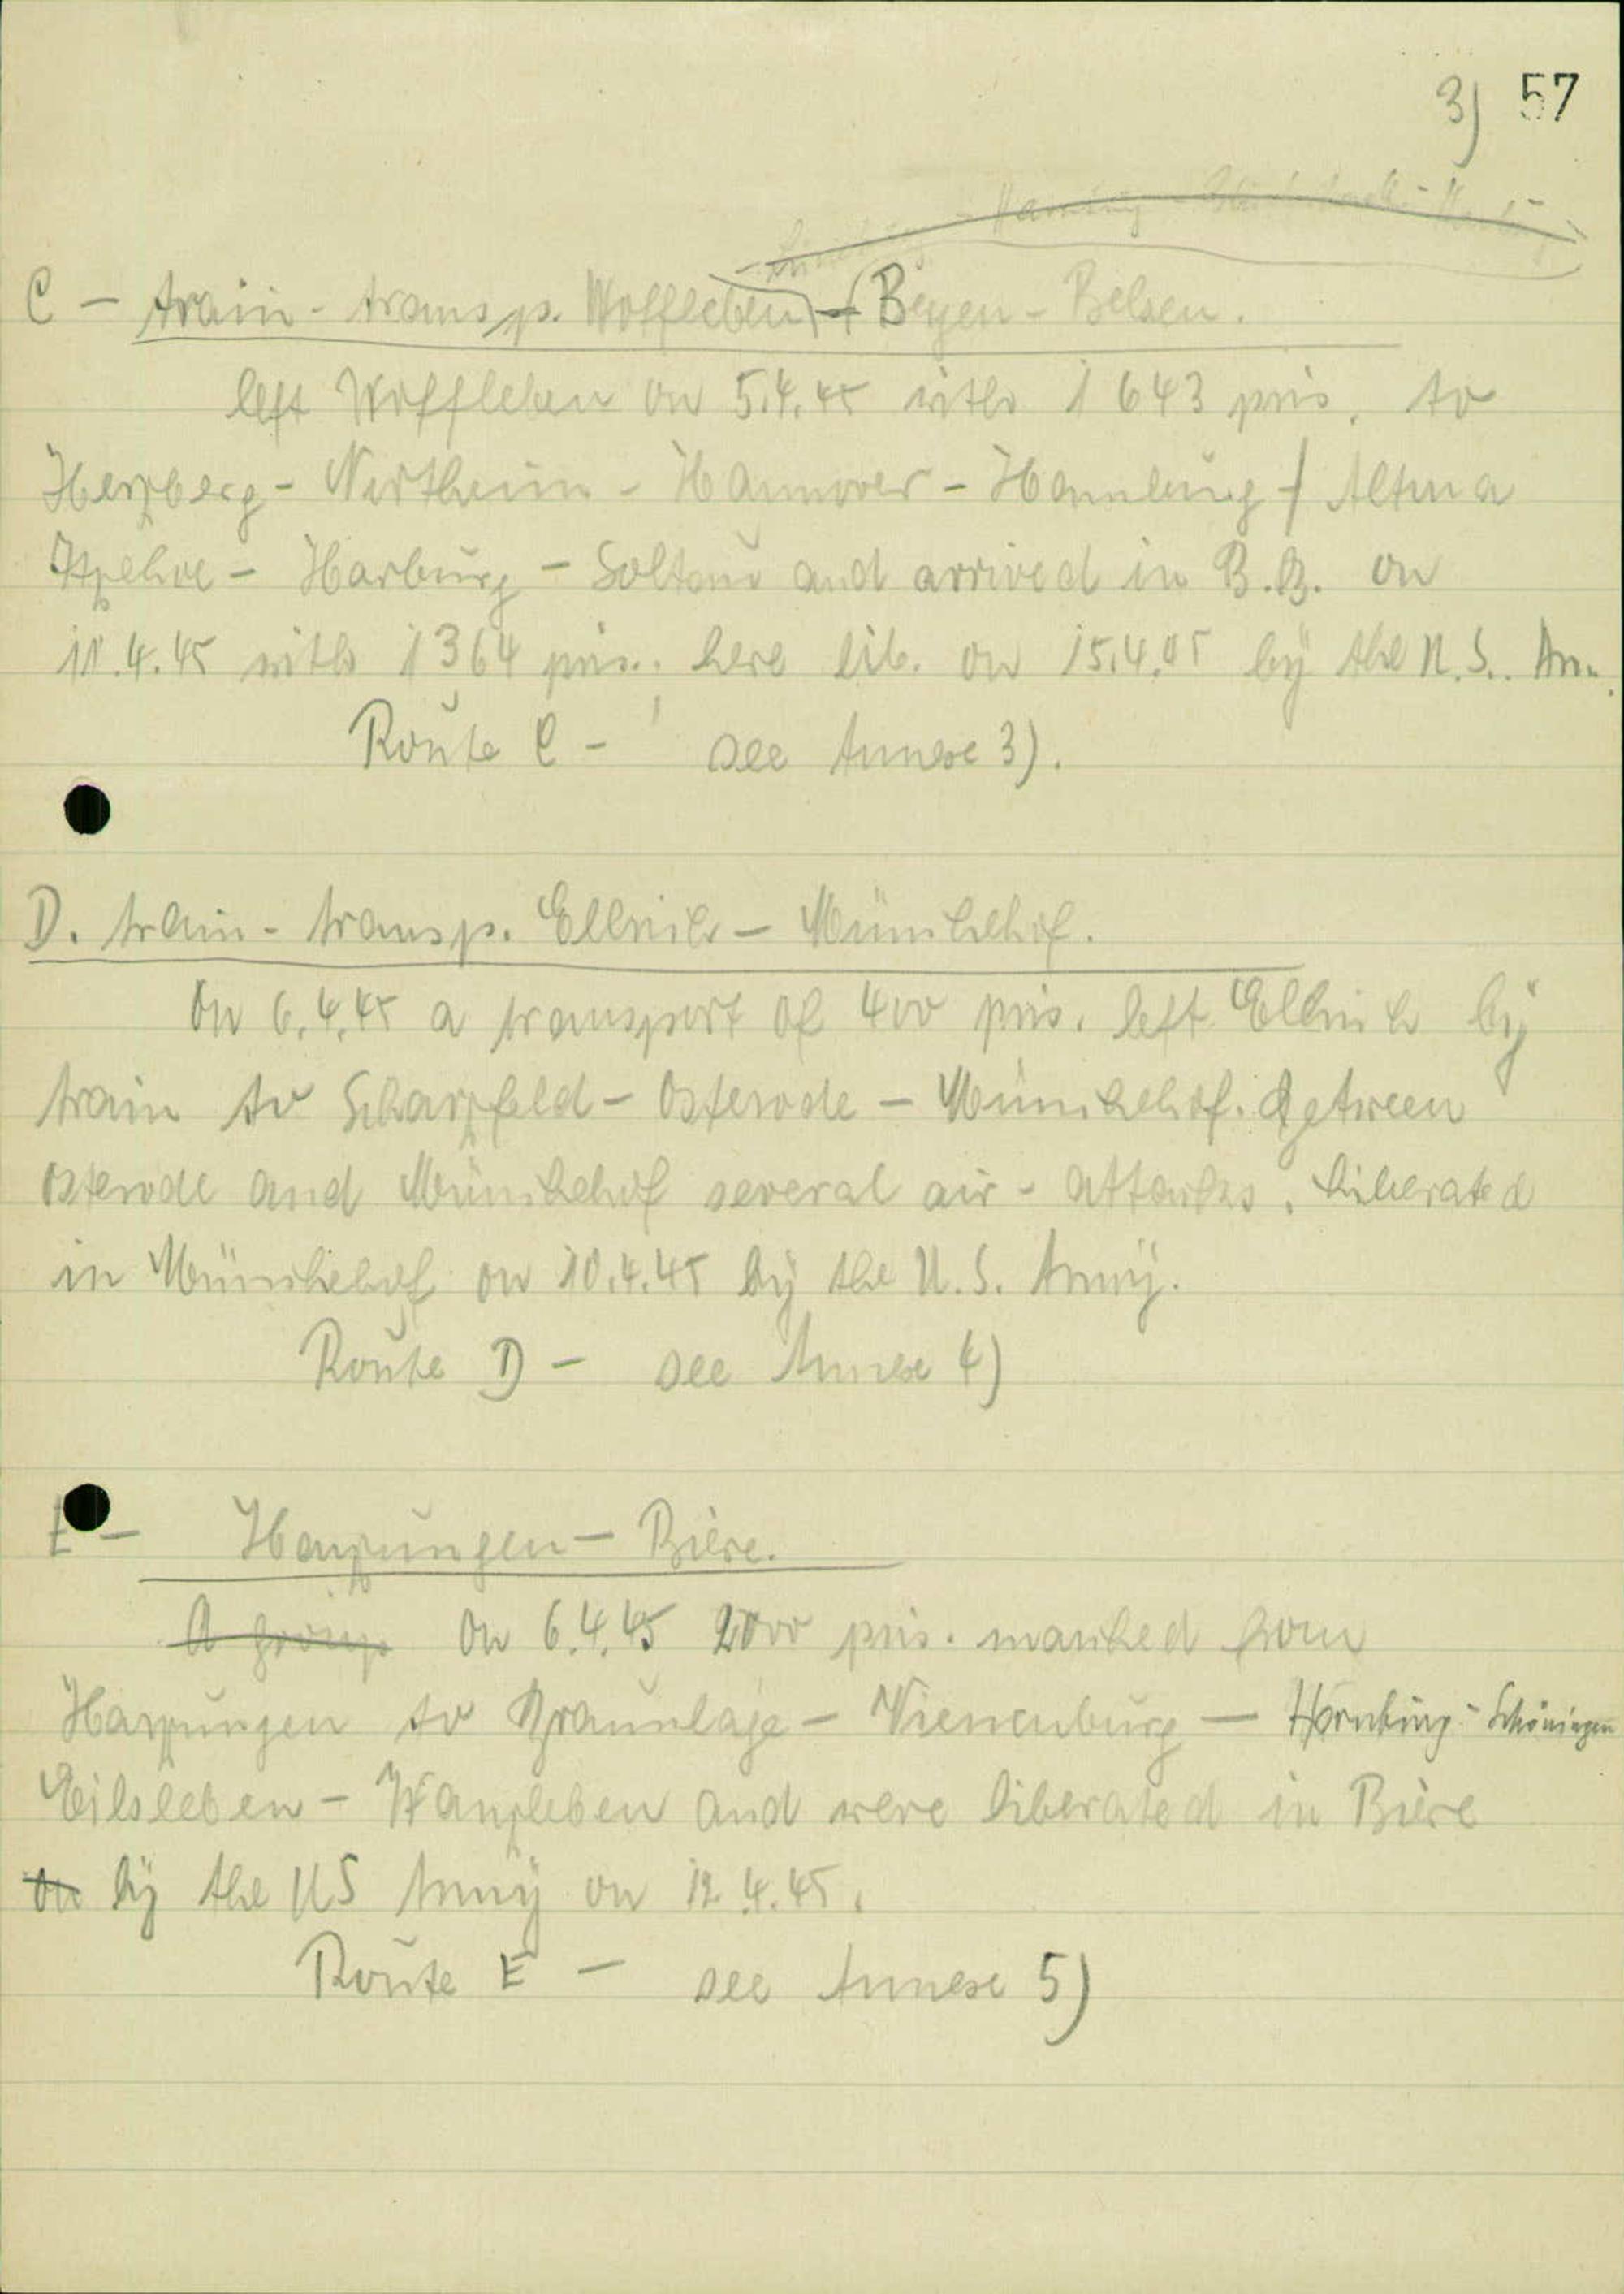 3) 57
C - train - transp. Woffleben - Bergen - Belsen.
left Woffleben on 5.4.45 with 1643 pris. to
Herzberg - Northeim - Hannover - Hamburg / Altona
Itzehoe - Harburg - Soltau and arrived in B.B. on
11.4.45 with 1364 pris. here lib. on 15.4.45 by the U.S. Arm.
Route C - see Annexe 3).
D. train - transp. Ellrich - Münchehof.
On 6.4.45 a transport of 400 pris. left Ellrich by
train to Scharzfeld - Osterode - Münchehof. Between
Osterode and Münchehof several air - attacks. Liberated
in Münchehof on 10.4.45 by the U.S. Army.
Route D - see Annexe 4)
E - Harzungen - Biere.
A group On 6.4.45 2000 pris. marched from
Harzungen to Braunlage - Vienenburg - Hornburg - Schöningen
Eilsleben - Wanzleben and were liberated in Biere
on by the US Army on 12.4.45.
Route E - see Annexe 5)